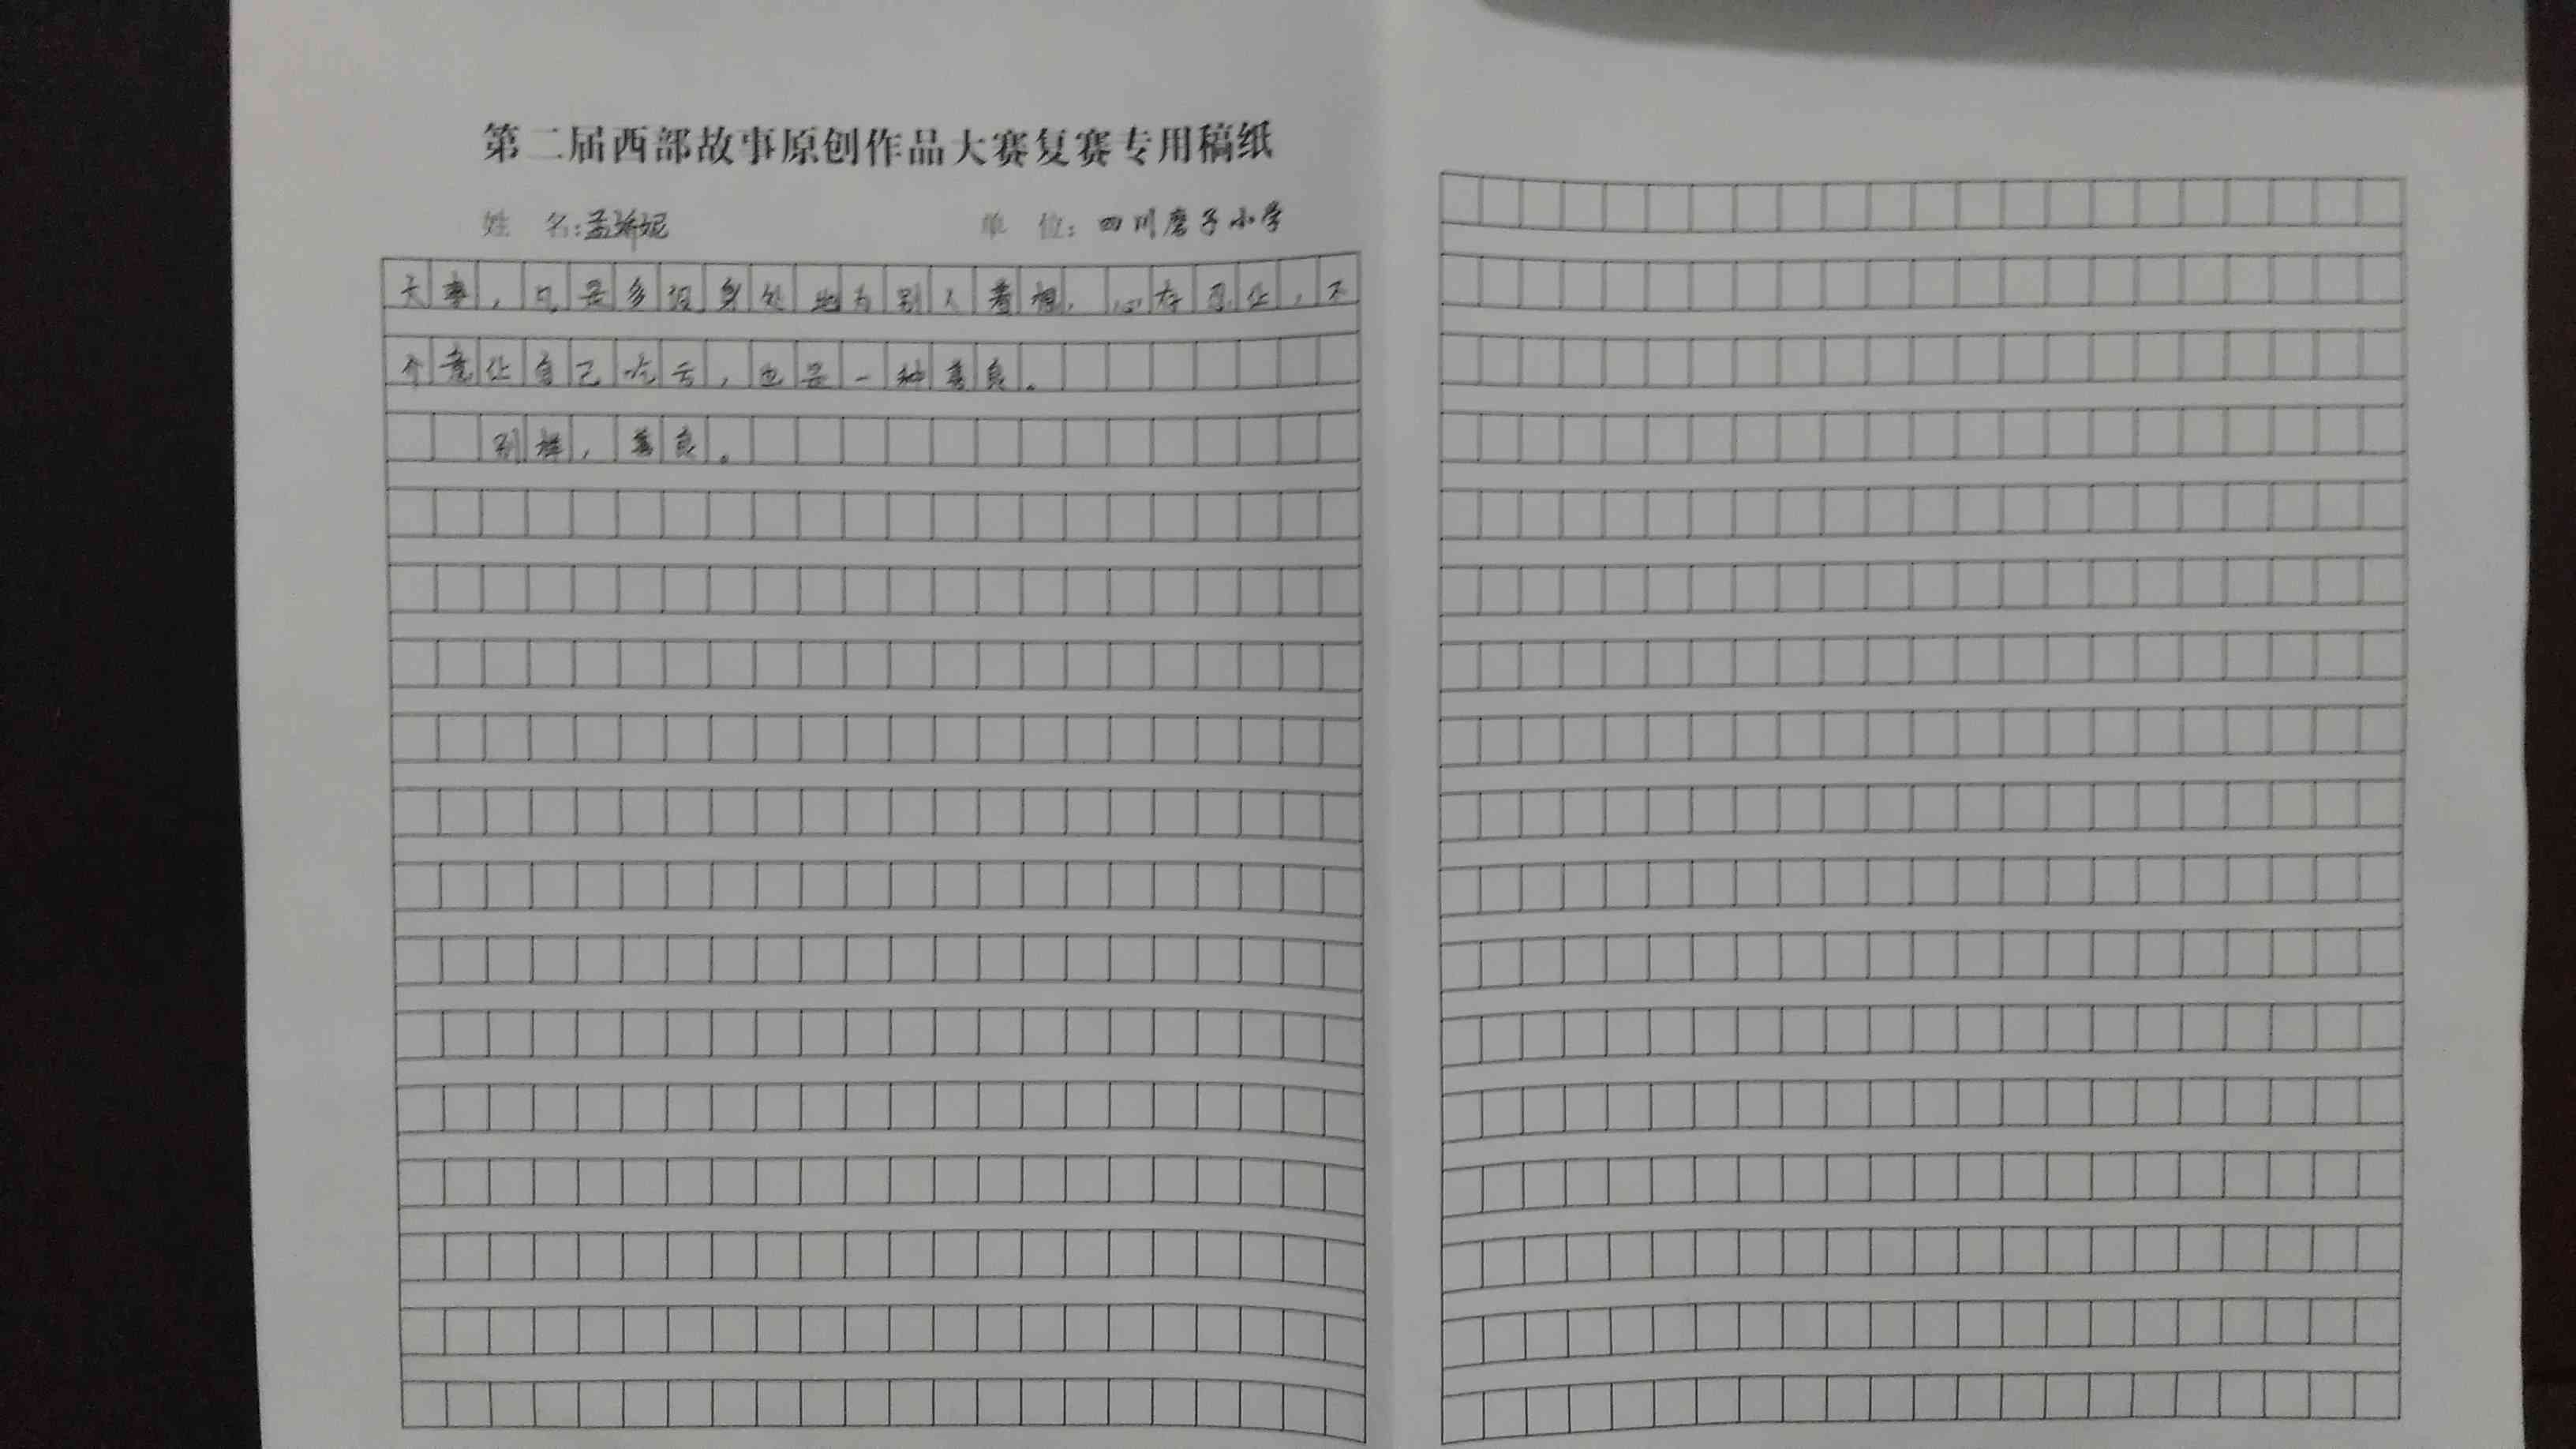 第二届西部故事原创作品大赛复赛专用稿纸
姓 名:孟娇妮 单 位:四川磨子小学
大事,只是多设身处地为别人着想,心存忍让,不
介意让自己吃亏,也是一种善良。
别样,善良。